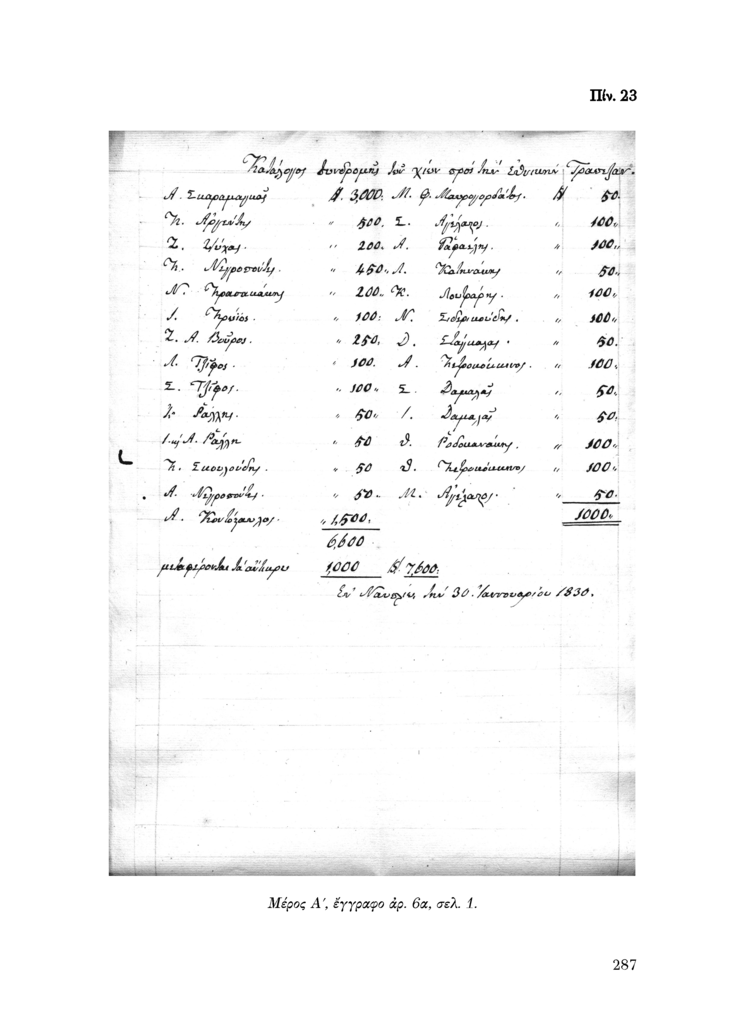 Πίν. 23
Κατάλογος συνδρομῆς τῶν χίων πρός τήν ἐθνικήν Τράπεζαν.
Α. Σκαραμαγκᾶς $. 3,000. Μ. Φ. Μαυρογορδάτος. $ 50.
Π. Ἀργέντης " 500. Σ. Ἀγέλαστος. " 100.
Ζ. Ψύχας. " 200. Α. Ῥαφαέλης. " 100.
Π. Νεγροπόντες. " 450. Λ. Κατηνάκης " 50.
Ν. Πρασακάκης " 200. Κ. Λουτράρης. " 100.
Ι. Πρώϊος. " 100. Ν. Σιδερικούδης. " 100.
Ζ. Α. Βοῦρος. " 250. Δ. Σταγκαλας. " 50.
Λ. Τζίφος. " 100. Α. Πετροκόκκινος. " 100.
Σ. Τζίφος. " 100. Σ. Δαμαλᾶς " 50.
Ράλλης. " 50. Ι. Δαμαλᾶς " 50.
Ι. κ Α. Ράλλη " 50 Θ. Ροδοκανάκης. " 100.
Π. Σκουλούδης. " 50 Θ. Πετροκόκκινος " 100.
Α. Νεγροπόντες. " 50. Μ. Ἀγέλαστος. " 50.
Α. Κοντόσταυλος. " 1,500. 1000.
6,600
μεταφέρονται τά ἀντικρυ 1,000 $. 7,600.
Ἐν Ναυπλίῳ τήν 30. Ἰαννουαρίου 1830.
Μέρος Α′, ἔγγραφο ἀρ. 6α, σελ. 1.
287